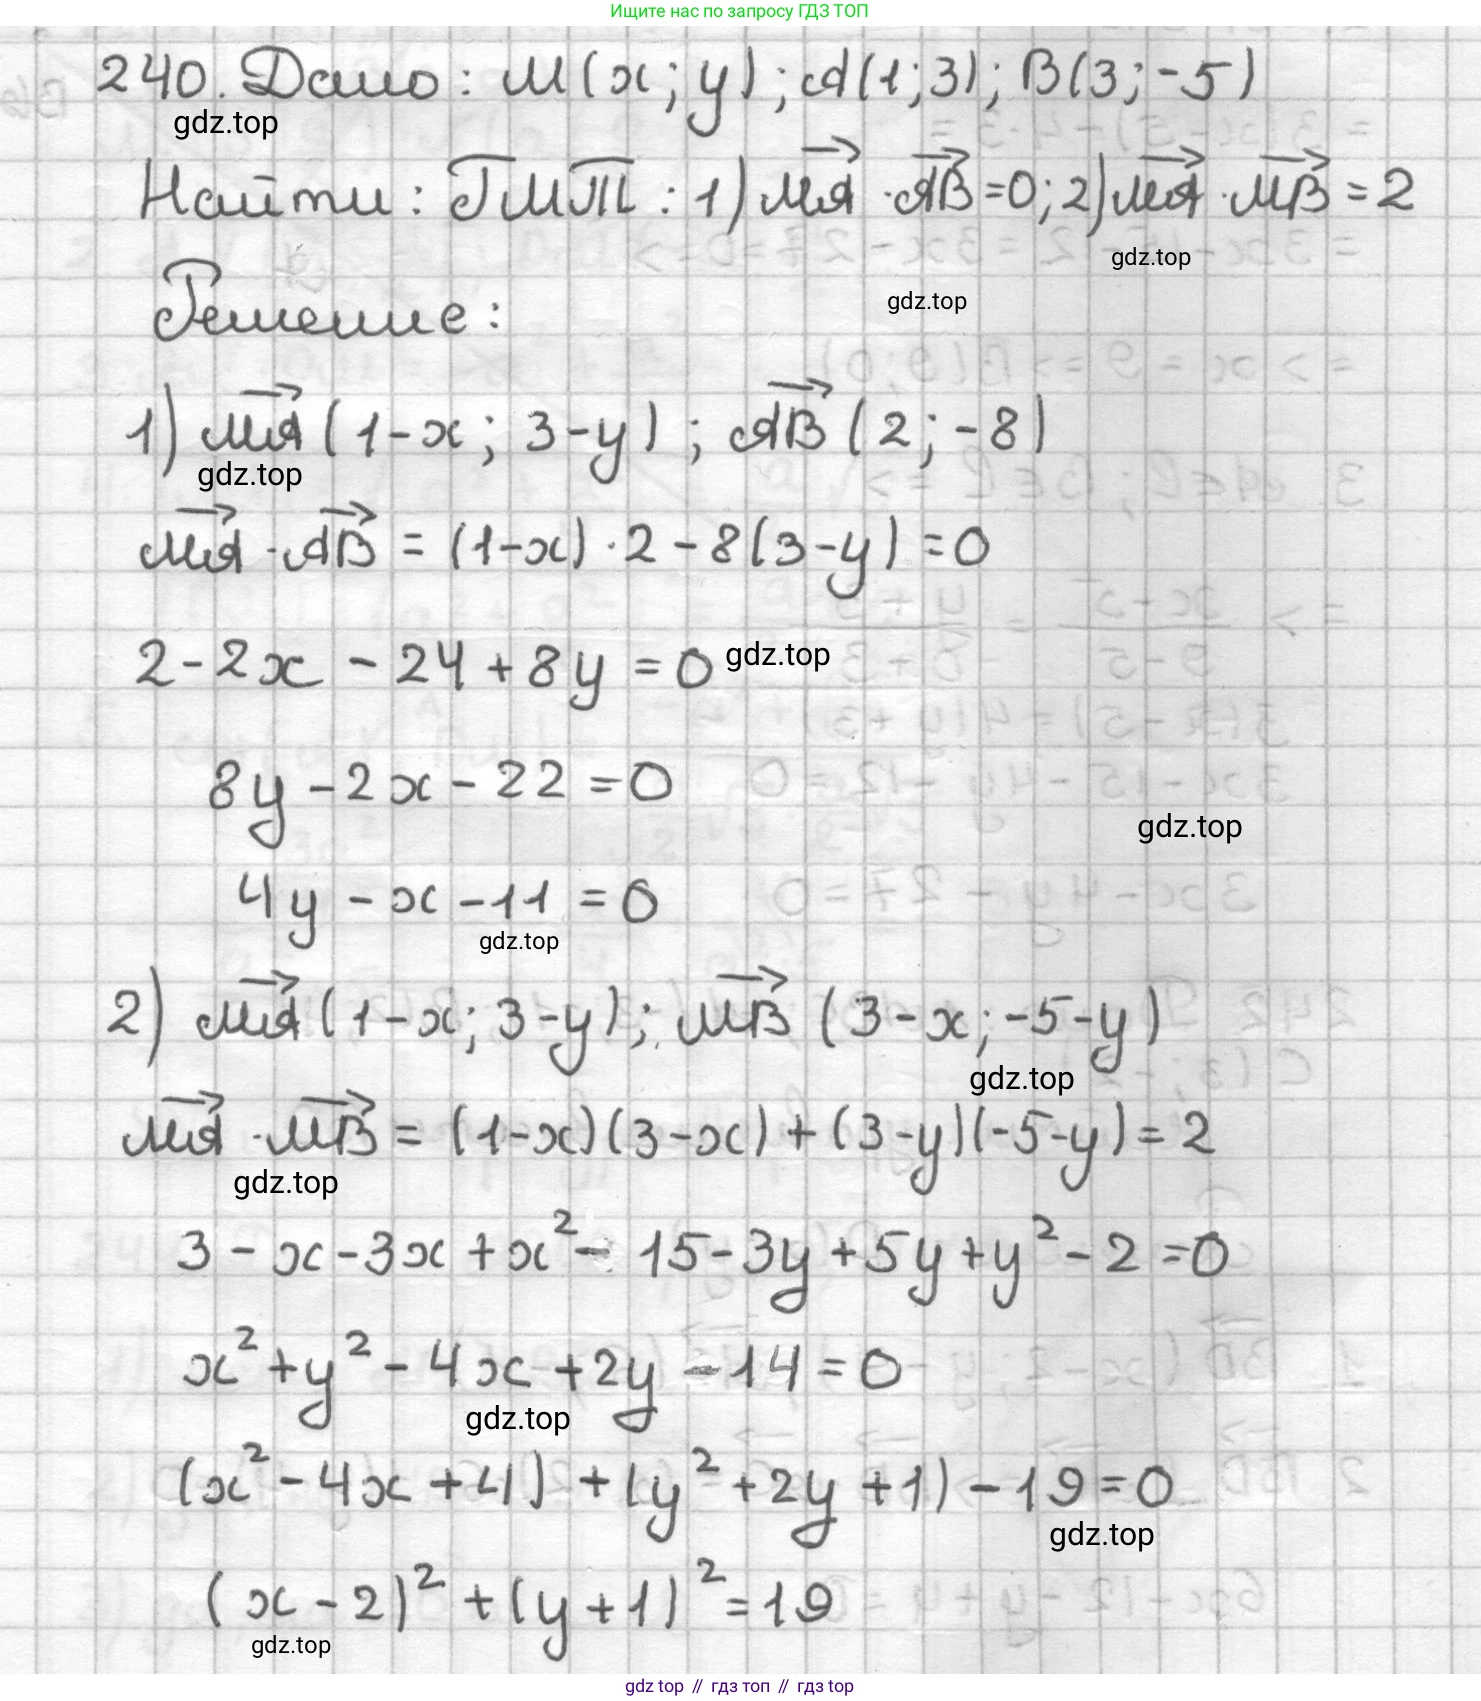 Ищите нас по запросу ГДЗ ТОП
240. Дано: M(x; y); A(1; 3); B(3; -5)
gdz.top
Найти: ГМТ: 1) MA→ · AB→ = 0; 2) MA→ · MB→ = 2
gdz.top
gdz.top
Решение:
1) MA→ (1-x; 3-y); AB→ (2; -8)
gdz.top
MA→ · AB→ = (1-x) · 2 - 8(3-y) = 0
2 - 2x - 24 + 8y = 0
gdz.top
8y - 2x - 22 = 0
gdz.top
4y - x - 11 = 0
gdz.top
2) MA→ (1-x; 3-y); MB→ (3-x; -5-y)
gdz.top
MA→ · MB→ = (1-x)(3-x) + (3-y)(-5-y) = 2
gdz.top
3 - x - 3x + x² - 15 - 3y + 5y + y² - 2 = 0
x² + y² - 4x + 2y - 14 = 0
gdz.top
(x² - 4x + 4) + (y² + 2y + 1) - 19 = 0
gdz.top
(x - 2)² + (y + 1)² = 19
gdz.top
gdz top // гдз топ // гдз top